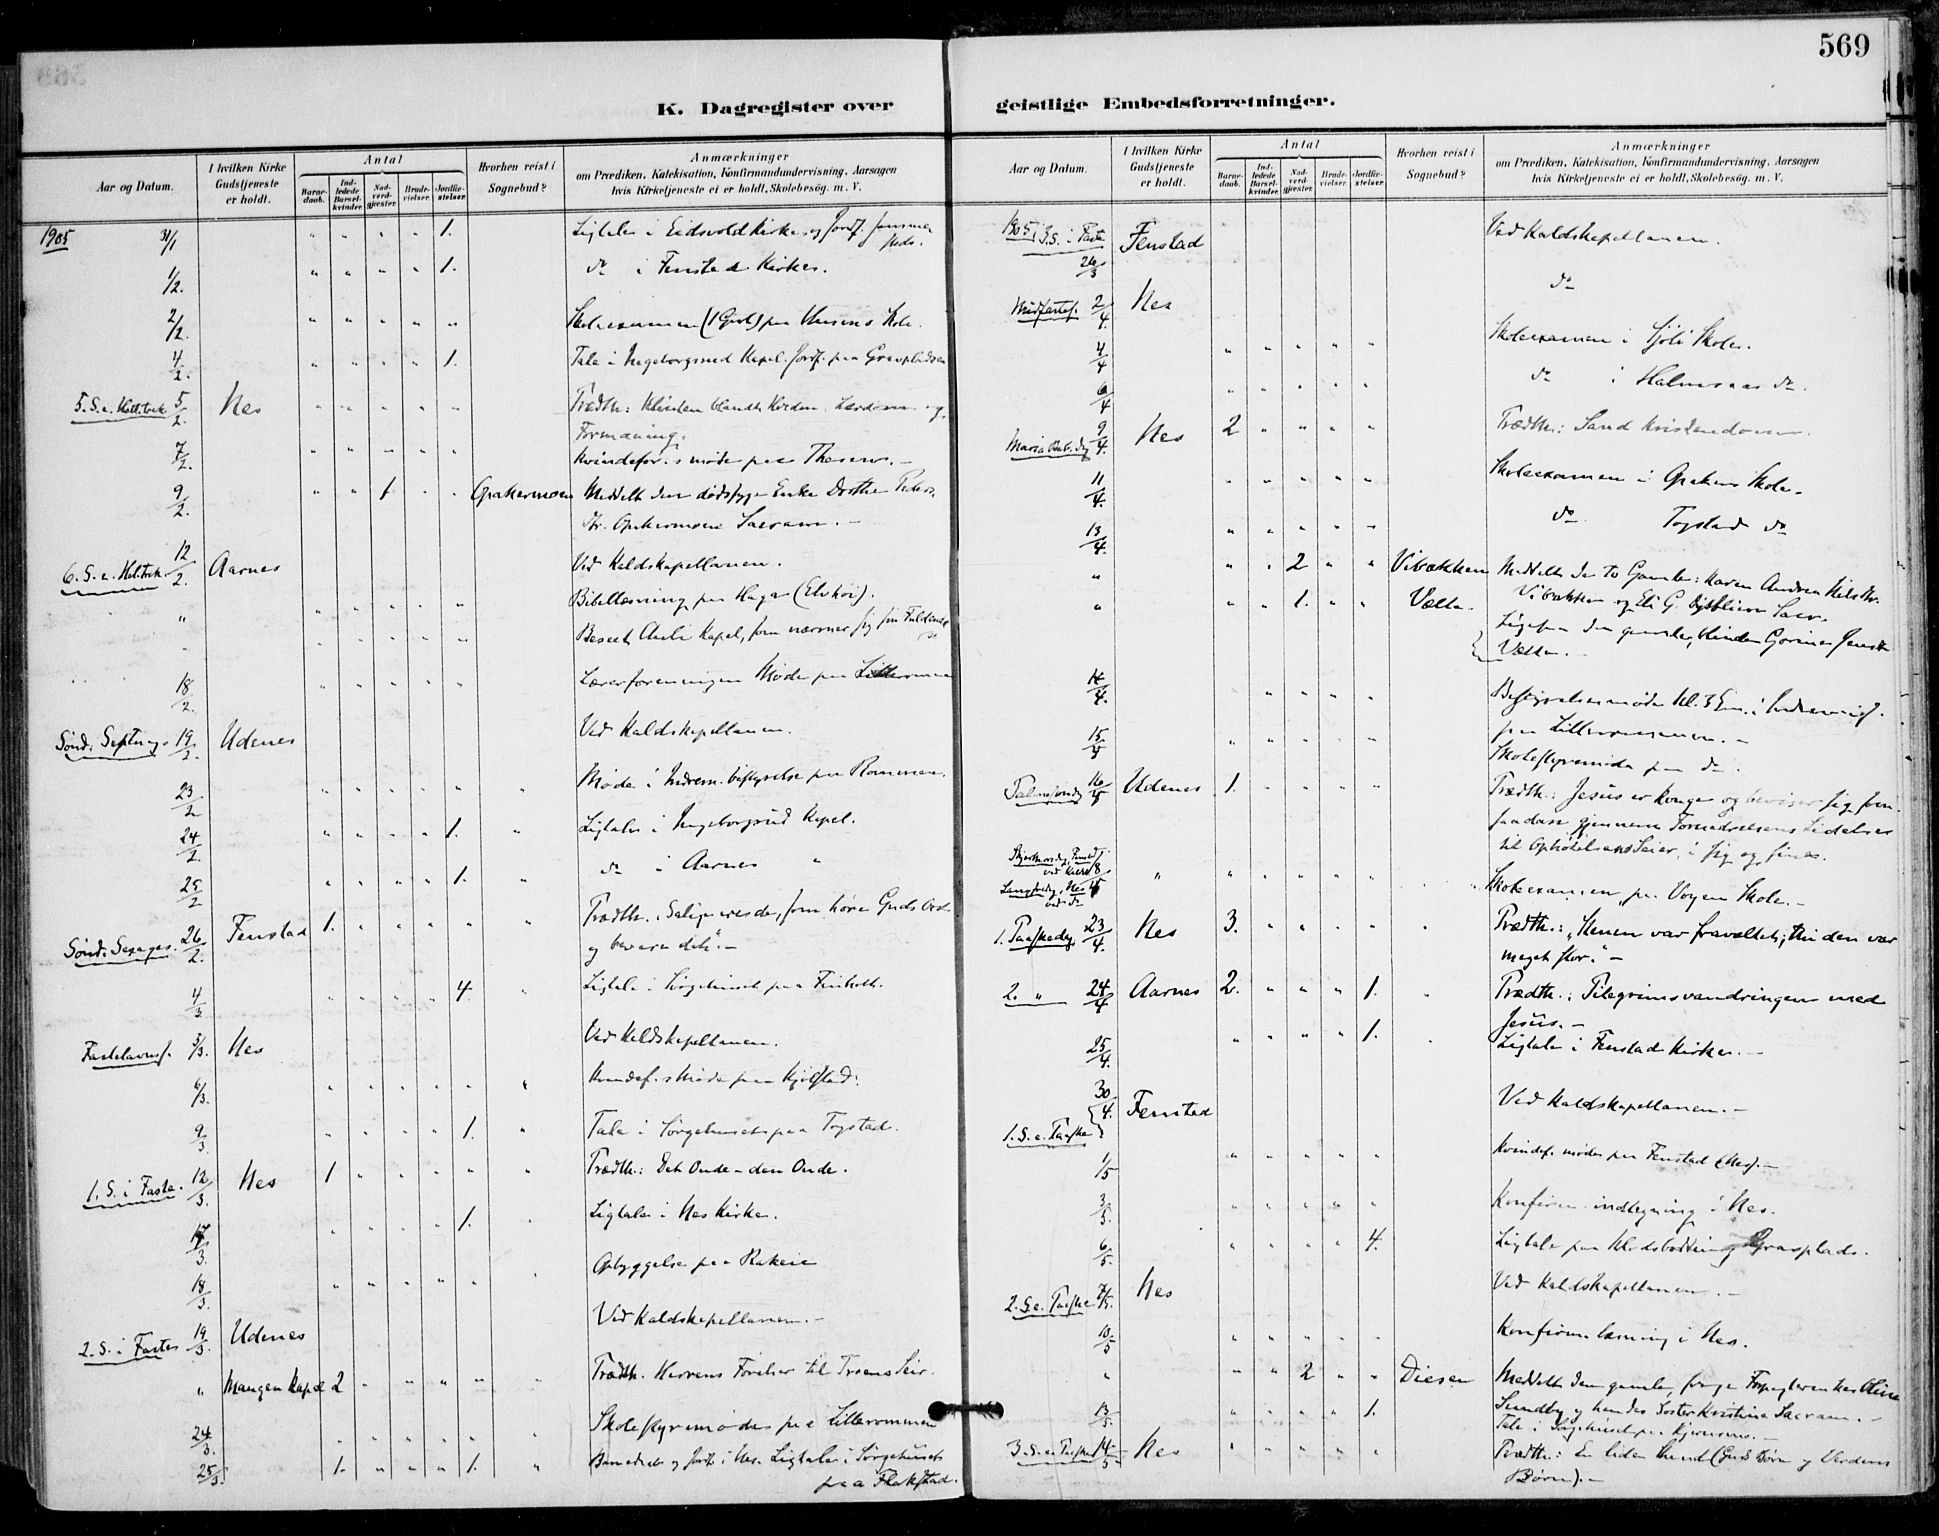 569
K. Dagregister over geistlige Embedsforretninger.
Aar og Datum.
I hvilken Kirke Gudstjeneste er holdt.
Antal
Barnedaab.
Indledede Barselkvinder.
Nadverdgjester.
Brudevielser.
Jordfæstelser.
Hvorhen reist i Sognebud?
Anmærkninger
om Prædiken, Katekisation, Konfirmandundervisning, Aarsagen
hvis Kirketjeneste ei er holdt, Skolebesøg. m. V.
1905 31/1 " " " " 1. Ligtale i Eidsvold Kirke og Jordf.
1/2. " " " " 1. do i Fenstad Kirke.
2/2. " " " " " Skoleexamen Skole.
4/2. " " " " 1. Tale i Ingeborgsrud Kapel. Jordf. paa Gravpladsen
5. S. e. Hell. trek. 5/2. Nes " " " " " Prædth.:
Formaning.
7/2. " " " " " Kvindefor.s møde paa
9/2. " " 1 " " Opakermoen Meddelt den dødssyge Enke Dorthea
Opakermoen Sacram. –
6. S. e. Hel. trek. 12/2. Aarnes Ved Kaldskapellanen.
" " " " " " Bibellæsning paa Haga
" " " " " Beseet Kapel, som nærmer sig sin
18/2. " " " " " Lærerforeningen Møde paa
Sønd. Septuag. 19/2. Udenes Ved Kaldskapellanen.
23/2 " " " " " " Møde i Indrem. bestyrelse paa Rommen.
24/2. " " " " 1. " Ligtale i Ingeborgrud Kapel.
25/2 " " " " 1. " do i Aarnes "
Sønd. Sexages. 26/2. Fenstad 1. " " " " " Prædth. Salige ere de, som høre Guds Ord
og bevare det". –
4/3 " " " " 4. " Ligtale i Sørgehuset paa
Fastelavnsf. 5/3. Nes Ved Kaldskapellanen.
6/3. " " " " " " Kvindef.s Møde paa
9/3 " " " " 1. " Tale i Sørgehuset paa Togstad.
1. S. i Faste. 12/3. Nes 1 " " " " " Prædth.: Det Onde – den Onde.
17/3. " " " 1. " Ligtale i Nes Kirke.
18/3. " " " " " " Opbyggelse paa Rakeie
2. S. i Faste 19/3. Udenes Ved Kaldskapellanen. –
" Mangen Kapel 2 " " " " " Prædth. Herrens til Troens Seir.
24/3. " " " " " " Skolestyremøde paa Lillerommen
25/3. 1. " " " 1. " Barnedaab og Jordf. i Nes. Ligtale i Sørgehuset
paa Flakstad.
Aar og Datum.
I hvilken Kirke Gudstjeneste er holdt.
Antal
Barnedaab.
Indledede Barselkvinder.
Nadverdgjester.
Brudevielser.
Jordfæstelser.
Hvorhen reist i Sognebud?
Anmærkninger
om Prædiken, Katekisation, Konfirmandundervisning, Aarsagen
hvis Kirketjeneste ei er holdt, Skolebesøg. m. V.
1905, 3. S. i Faste 26/3 Fenstad Ved Kaldskapellanen.
Midfastes. 2/4. Nes do
4/4 " " " " " Skoleexamen i Skole.
6/4 " " " " do i do.
Maria Beb. dg 9/4. Nes 2 " " " " Prædth.: Sand Kristendom.
11/4. " " " " " Skoleexamen i Opaker Skole.
13/4. " " " " " do. Togstad do
" " " 2 " " Vibakken Meddelt de to Gamle: Karen Andrea
Vibakken og Eli G. Sacr.
" " " 1. " " Vælta. Ligesaa den gamle, blinde
Vælta. –
14/4. " " " " Bestyrelsesmøde Kl. 3 Em. i
paa Lillerommen. –
15/4 " " " " " Skolestyremøde paa do.
Palmesøndg 16/4 Udenes 1. " " " " Prædth.: Jesus er Konge og beviser sig som
saadan gjennem Fornedrelsens Lidelser
til Ophøielsens Seier, i sig og sines.
Skjærtorsdg, Fenstad
ved Kald. 18/4 " " " " " " Skoleexamen paa Vogen Skole. –
Langfredg, Nes
ved do
1. Paaskedg. 23/4. Nes 3. " " " " " Prædth.: „Stenen var fravæltet; thi den var
meget stor." –
2. " 24/4 Aarnes 2. " " " 1. " Prædth.: Pilegrimsvandringen med
Jesus. –
25/4. " " " " 1. " Ligtale i Fenstad Kirke. –
30/4. Fenstad Ved Kaldskapellanen. –
1. S. e. Paaske
1/5 " " " " " Kvindef. møde paa Fenstad (Nes). –
3/5. " " " " " Konfirm. indtegning i Nes.
6/5. " " " " 4. Ligtale paa Gravplads.
2. S. e. Paaske 7/5. Nes Ved Kaldskapellanen. –
10/5 " " " " " Konfirm. læsning i Nes.
" " " 2 " " Diesen Meddelt den gamle, syge
Sundby og hendes Søster Kristine Sacram. –
13/5. " " " " 1. Tale i Sørgehuset paa
3. S. e. Paaske 14/5 Nes " " " " " Prædth.: En liden Stund (Guds Børn og Verdens
Børn). –